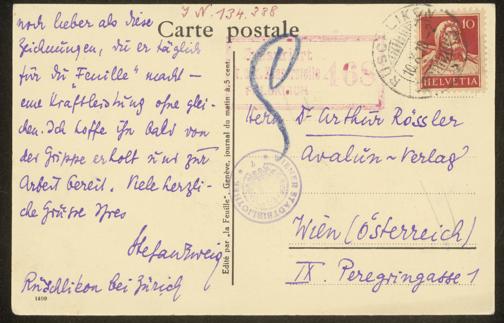 J.N. 134.288
Carte postale
noch lieber als diese
Zeichnungen, die er täglich
für die "Feuille" macht –
eine Kraftleistung ohne glei-
chen. Ich hoffe Ihn bald von
der Grippe erholt und zur
Arbeit bereit. Viele herzli-
che Grüsse Ihres
Stefan Zweig
Rüschlikon bei Zürich
1499
Edité par „la Feuille", Genève, journal du matin à 5 cent.
10
HELVETIA
RÜSCHLIKON
163
Herrn Dr Arthur Rössler
Avalun-Verlag
Wien (Österreich)
IX. Peregringasse 1
WIENER STADTBIBLIOTHEK